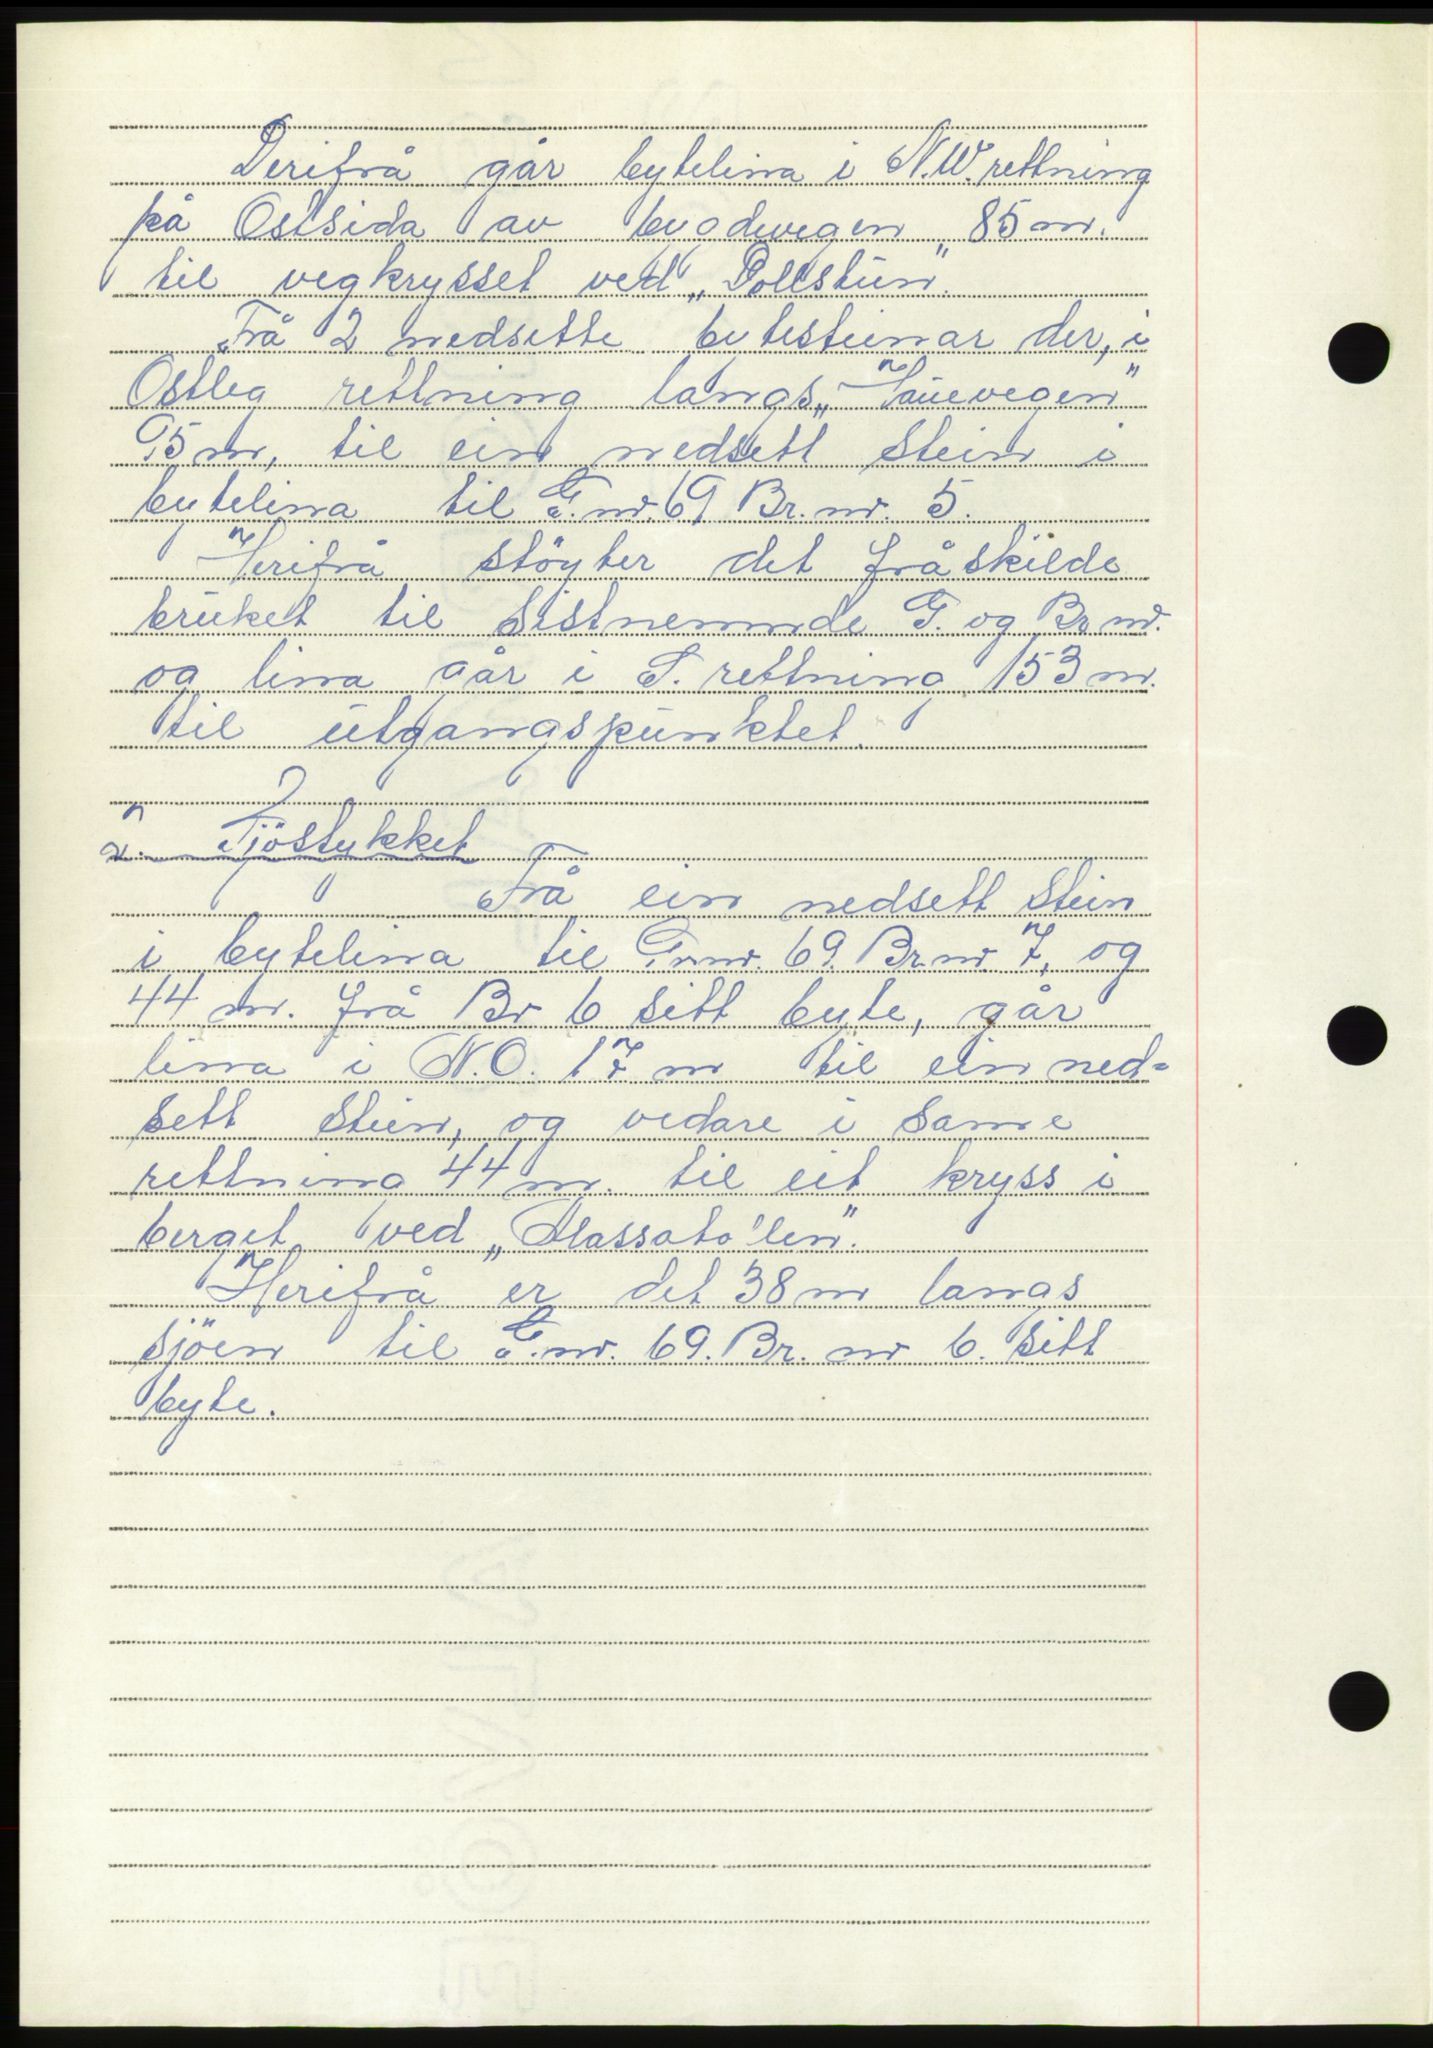 Derifrå går bytelina i N.W. rettning
på Ostsida av bygdevegen 85 m.
til vegkrysset ved „Pollstün".
Frå 2 nedsette bytesteinar der, i
Ostleg rettning langs „Hauevegen"
95 m, til ein nedsett Stein i
bytelina til G. nr. 69 Br. nr. 5.
Herifrå stöyter det fråskilde
brüket til sistnemnde G. og Br nr.
og lina går i S. rettning 153 m.
til ütgangspünktet.
2. Sjöstykket
Frå ein nedsett Stein
i bytelina til G. nr. 69. Br. nr 7, og
44 m. frå Br 6 sitt byte, går
lina i N.O. 17 m til ein ned=
sett Stein, og vedare i same
rettning 44 m. til eit kryss i
berget ved
Herifrå er det 38 m langs
sjöen til G. nr. 69. Br. nr 6. sitt
byte.